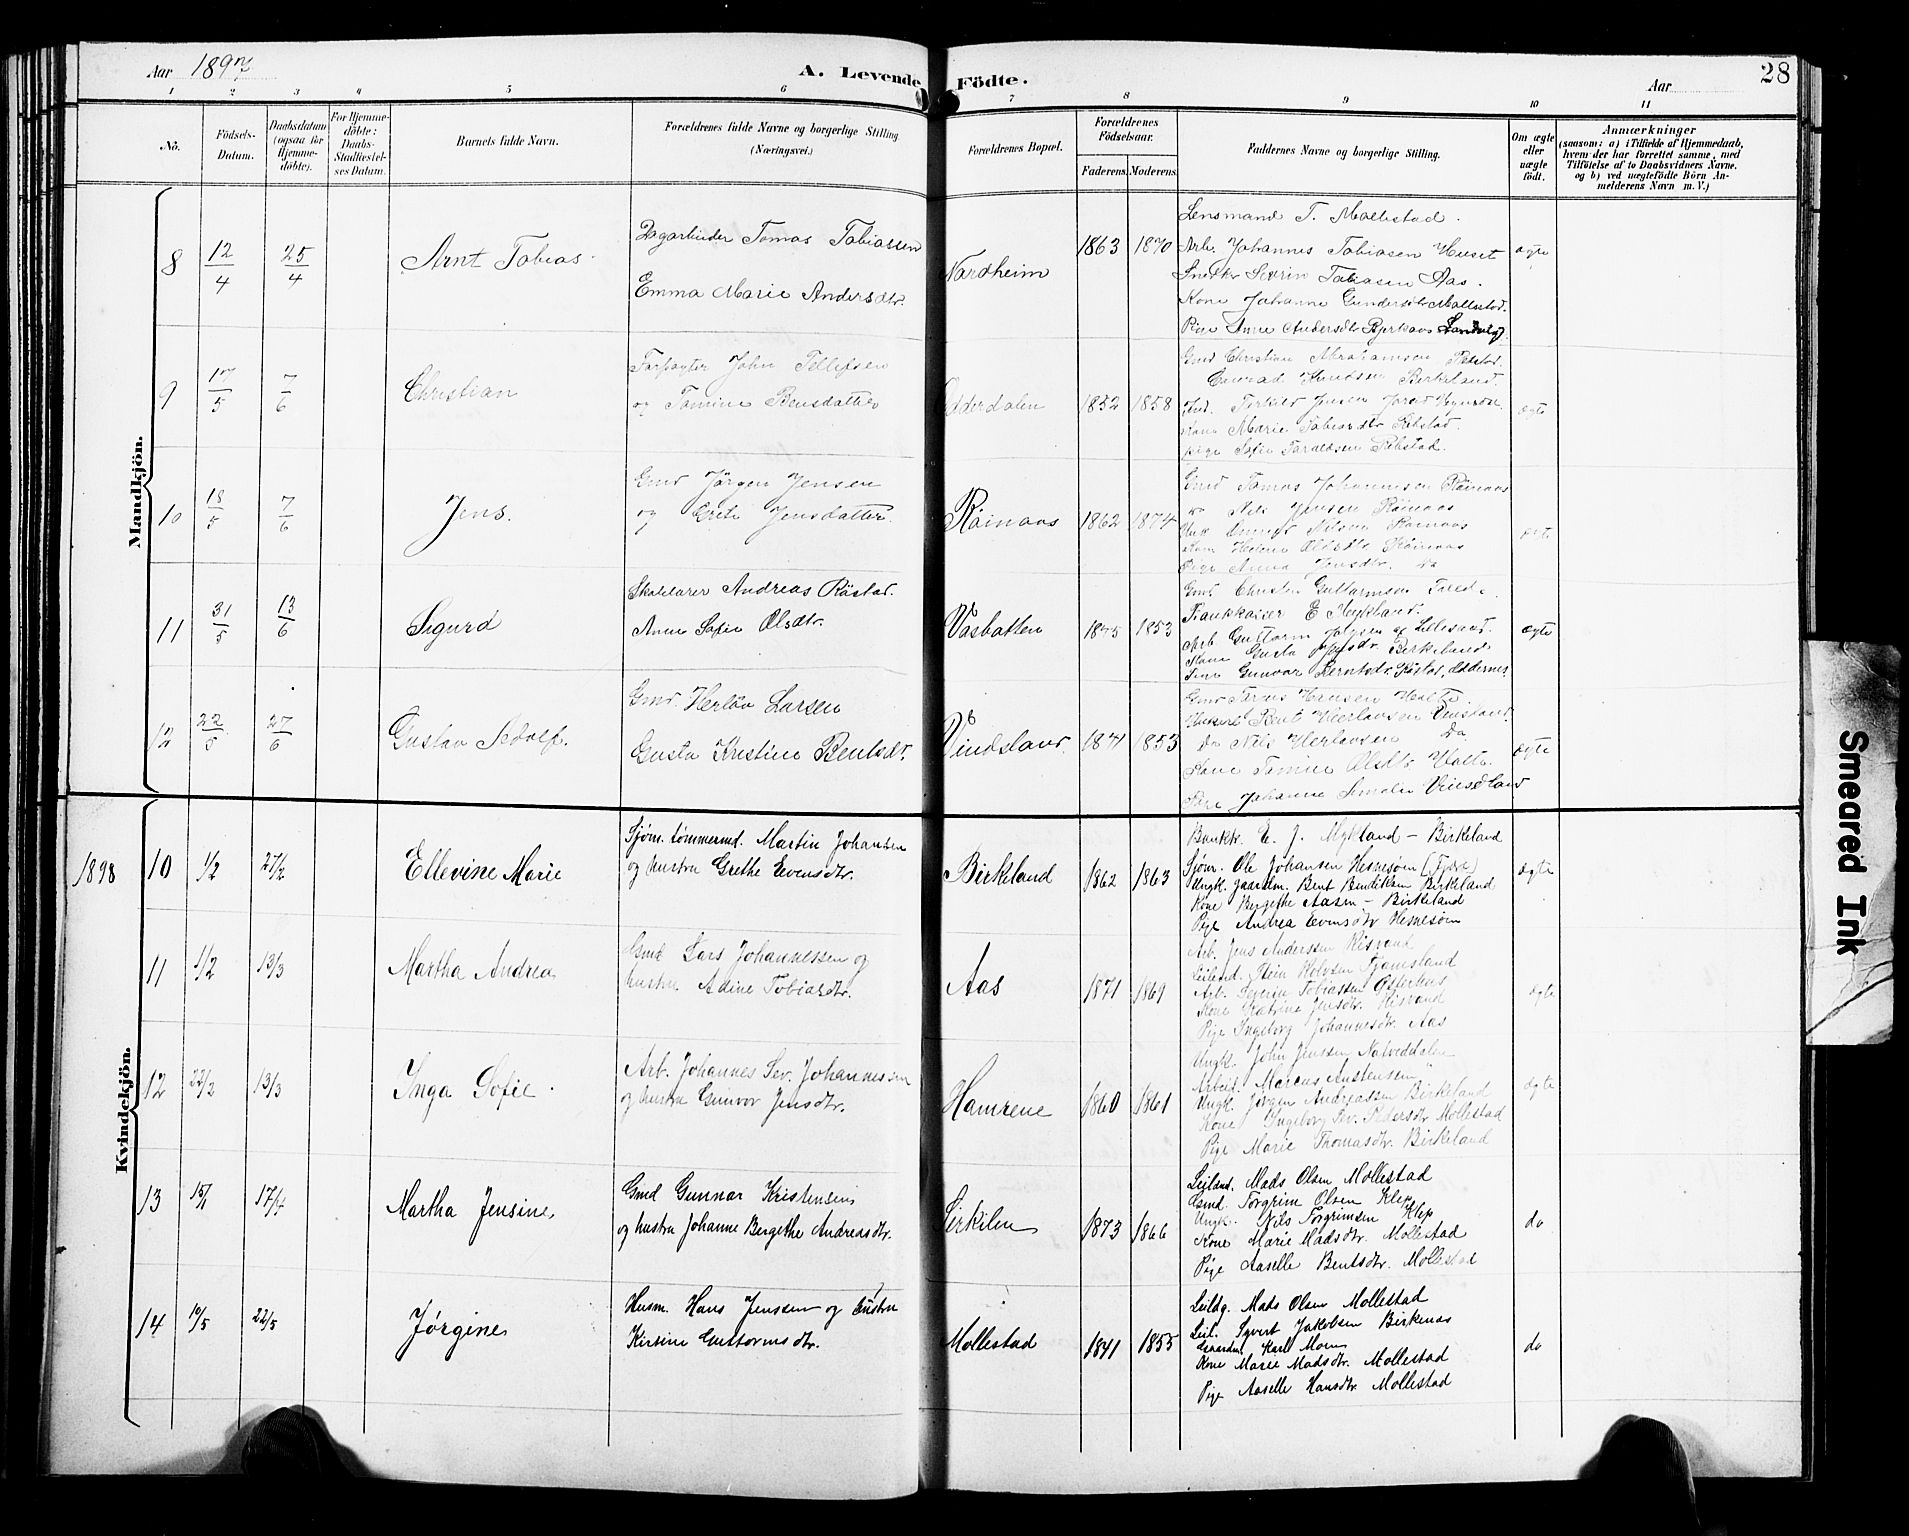 Aar 1897 A. Levende Födte. Aar 28
1 2 3 4 5 6 7 8 9 10 11
No.
Födsels-Datum.
Daabsdatum (ogsaa for Hjemme-döbte).
For Hjemme-döbte: Daabs-Stadfæstel-ses Datum.
Barnets fulde Navn.
Forældrenes fulde Navne og borgerlige Stilling (Næringsvei.)
Forældrenes Bopæl.
Forældrenes Födselsaar.
Faderens. Moderens.
Faddernes Navne og borgerlige Stilling.
Om ægte eller uægte födt.
Anmærkninger
(saasom: a) i Tilfælde af Hjemmedaab, hvem der har forrettet samme, med Tilföielse af to Daabsvidners Navne, og b) ved uægtefödte Börn An-melderens Navn m. V.)
Mandkjön.
8 12/4 25/4 Arnt Tobias
Dagarbeider Tomas Tobiassen
Emma Marie Andersdtr.
Nordheim 1863 1870
Lensmand T. Mollestad.
Arb. Johannes Tobiasen Huset
Snekkr Severin Tobiasen Aas.
Kone Johanne Gundersdtr Mollestad.
Pige Anne Andersdtr Bjerkaas
ægte
9 17/5 7/6 Christian
Forpagter John Tellefsen
og Tomine Bensdatter
1852 1858
Gmd Christian Abrahamsen Rebstad
Conrad Knudsen Birkeland.
Terkild Jensen
Kone Marie Tobiasdtr Rebstad.
pige Sofie Taraldsen Rebstad.
ægte
10 18/5 7/6 Jens.
Gmd Jørgen Jensen
og Grete Jensdatter.
Röinaas 1862 1874
Gmd Tomas Johannesen Röinaas
do Nils Jensen Röinaas
Nilsen Röinaas
Kone Helene Olsdtr. Röinaas
Pige Anna Jensdtr. do
ægte
11 31/5 13/6 Sigurd
Skolelærer Andreas Röstad.
Anne Sofie Olsdtr.
Vasbotten 1875 1853
Gmd Christen Guttormsen
E Mykland.
Arb Guttorm
Kone Gusta Birkeland
Gunvor Berntsdtr. Röstad, Oddernes
ægte
12 22/5 27/6 Gustav Adolf.
Gmd. Herlöv Larsen
Gusta Kristine Bentsdt.
Vindsland. 1871 1853
Gmd Hansen Holte
Bent Herlovsen Vinsland.
Do Nils Herlovsen Do
Kone Tomine Olsdtr Holte.
Pige Johanne Amalie Vinsdland
ægte
Kvindekjön.
1898
10 1/2 27/2 Ellevine Marie
Sjøm. tømmermd. Martin Johansen
og hustru Grethe Evensdtr.
Birkeland 1862 1863
Bankk. E. J. Mykland - Birkeland
Sjøm. Ole Johansen Hesnesøen (Fjære)
Ungk. gaardm. Bent Bendiksen Birkeland
Kone Bergethe Aasen - Birkeland
Pige Andrea Evensdtr Hesnesøen
ægte
11 4/2 13/3 Martha Andrea
Gmd Lars Johannessen og
hustru Adine Tobiasdtr.
Aas 1871 1869
Arb. Jens Anderssen Risvand
Leilend. Stein Holvsen Tjomsland
Arb. Severin Tobiassen Osterhus
Kone Katrine Jensdtr. Risvand
Pige Ingeborg Johannesdtr. Aas
ægte
12 22/2 13/3 Inga Sofie
Arb. Johannes Sev. Johannessen
og hustru Gunvor Jensdtr.
Hamrene 1860 1861
Ungk. John Jenssen Natveddalen
Arbeid. Marcus Austensen "
Ungk. Jørgen Andreassen Birkeland
Kone Ingeborg Sev. Pedersdtr Mollestad
Pige Marie Thomasdtr. Birkeland
ægte
13 15/2 17/4 Martha Jensine
Gmd Gunnar Kristensen
og hustru Johanne Bergethe Andreasdtr.
Lirkilen 1873 1866
Leiland. Mads Olsen Mollestad
Gmd. Torgrim Olsen Klep
Ungk. Nils Torgrimsen Klep
Kone Marie Madsdtr. Mollestad
Pige Aaselle Bentsdtr. Mollestad
do
14 10/5 22/5 Jørgine
Husm. Hans Jenssen og hustru
Kirstine Guttormsdtr.
Mollestad 1841 1855
Leildg. Mads Olsen Mollestad
Leil. Syvert Jakobsen Birkenes
Gaardm. Karl Moen
Kone Marie Madsdtr. Mollestad
Pige Aaselle Hansdtr. Mollestad
do
Smeared Ink